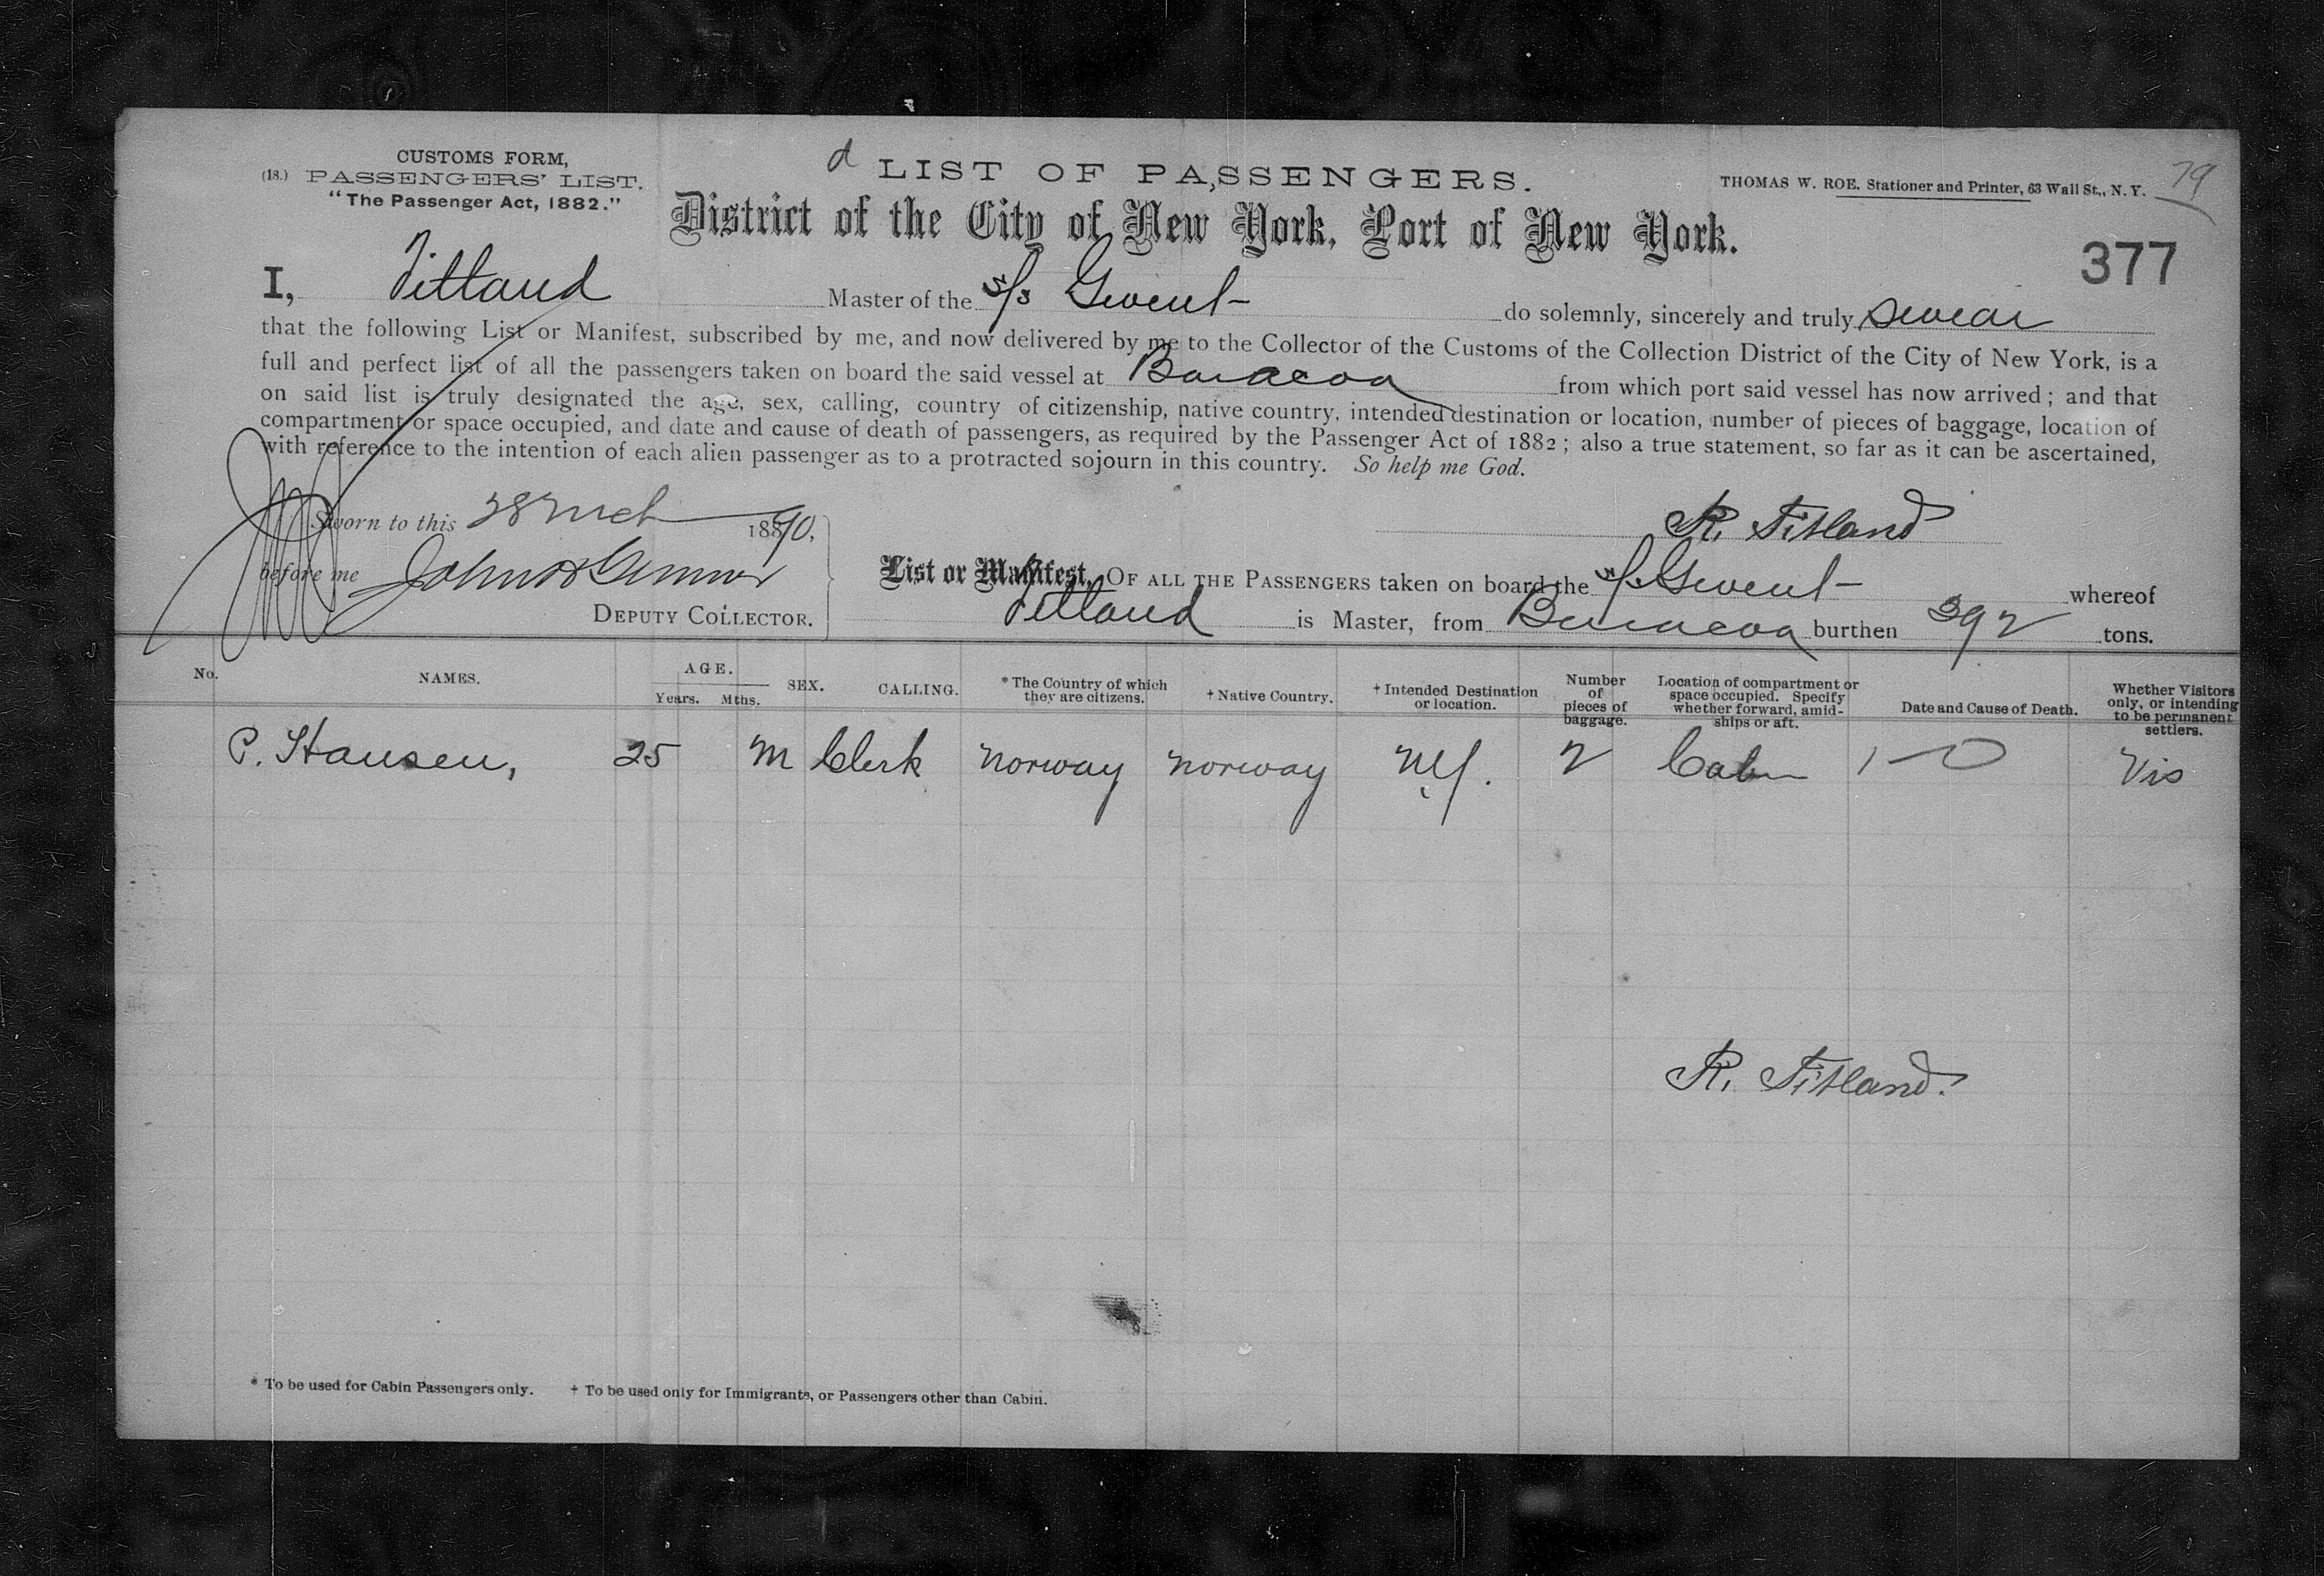 CUSTOMS FORM,
(18.) PASSENGERS' LIST.
"The Passenger Act, 1882."
d LIST OF PASSENGERS.
District of the City of New York, Port of New York.
THOMAS W. ROE. Stationer and Printer, 63 Wall St., N. Y.
79
377
I, Titland Master of the S/s Gwent do solemnly, sincerely and truly swear
that the following List or Manifest, subscribed by me, and now delivered by me to the Collector of the Customs of the Collection District of the City of New York, is a
full and perfect list of all the passengers taken on board the said vessel at Baracoa from which port said vessel has now arrived; and that
on said list is truly designated the age, sex, calling, country of citizenship, native country, intended destination or location, number of pieces of baggage, location of
compartment or space occupied, and date and cause of death of passengers, as required by the Passenger Act of 1882; also a true statement, so far as it can be ascertained,
with reference to the intention of each alien passenger as to a protracted sojourn in this country. So help me God.
Sworn to this 28 Mch 1890,
R. Titland
before me John
DEPUTY COLLECTOR.
List or Manifest, OF ALL THE PASSENGERS taken on board the S/s Gwent whereof
Titland is Master, from Baracoa burthen 392 tons.
No. NAMES. AGE. Years. Mths. SEX. CALLING. * The Country of which they are citizens. † Native Country. † Intended Destination or location. Number of pieces of baggage. Location of compartment or space occupied. Specify whether forward, amidships or aft. Date and Cause of Death. Whether Visitors only, or intending to be permanent settlers.
P. Hansen, 25 M Clerk Norway Norway NY. 2 Cabin 1 — 0 Vis
R. Titland.
* To be used for Cabin Passengers only. † To be used only for Immigrants, or Passengers other than Cabin.